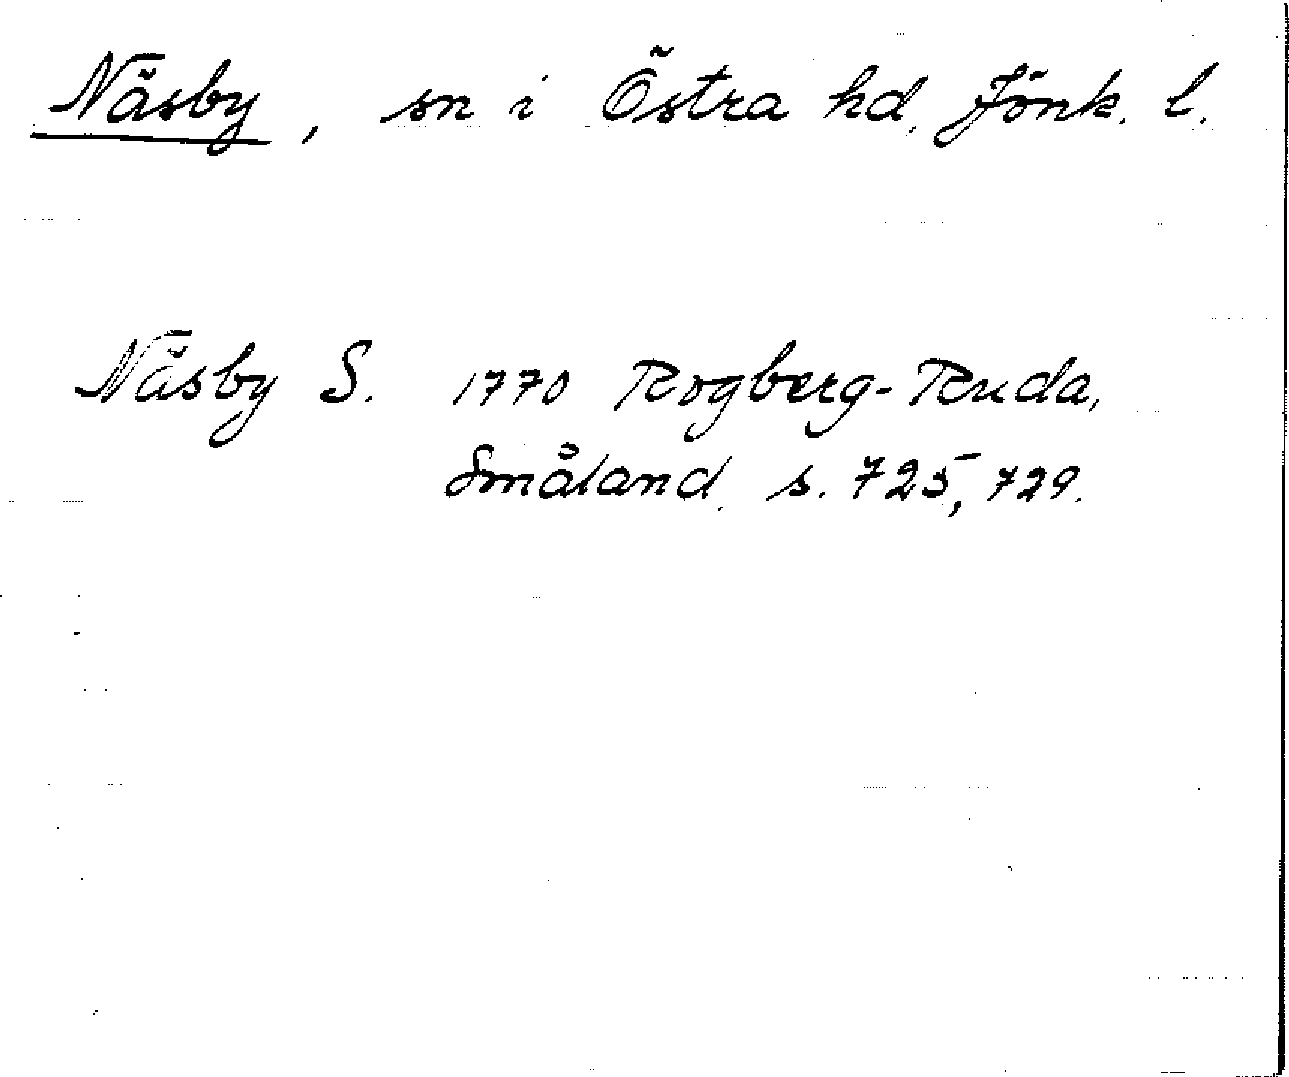 Näsby, sn i Östra hd, Jönk. l.
Näsby S. 1770 Rogberg-Ruda,
Småland, s. 725, 729.